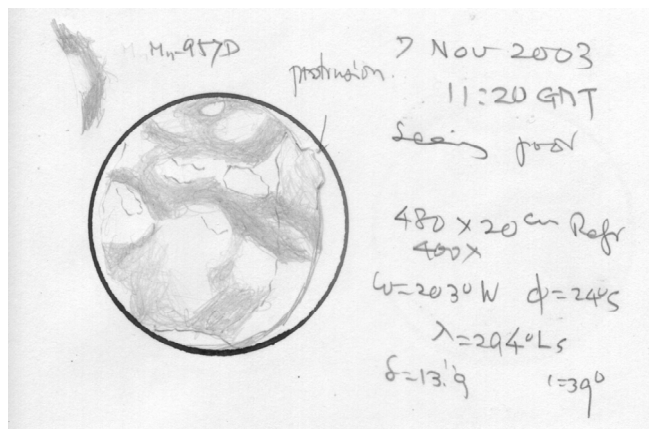 Mn-957D
protrusion.
7 Nov 2003
11:20 GMT
Seeing poor
480 X 20cm Refr
400X
ω=203°W φ=24°S
λ=294°Ls
δ=13".9 ι=39°